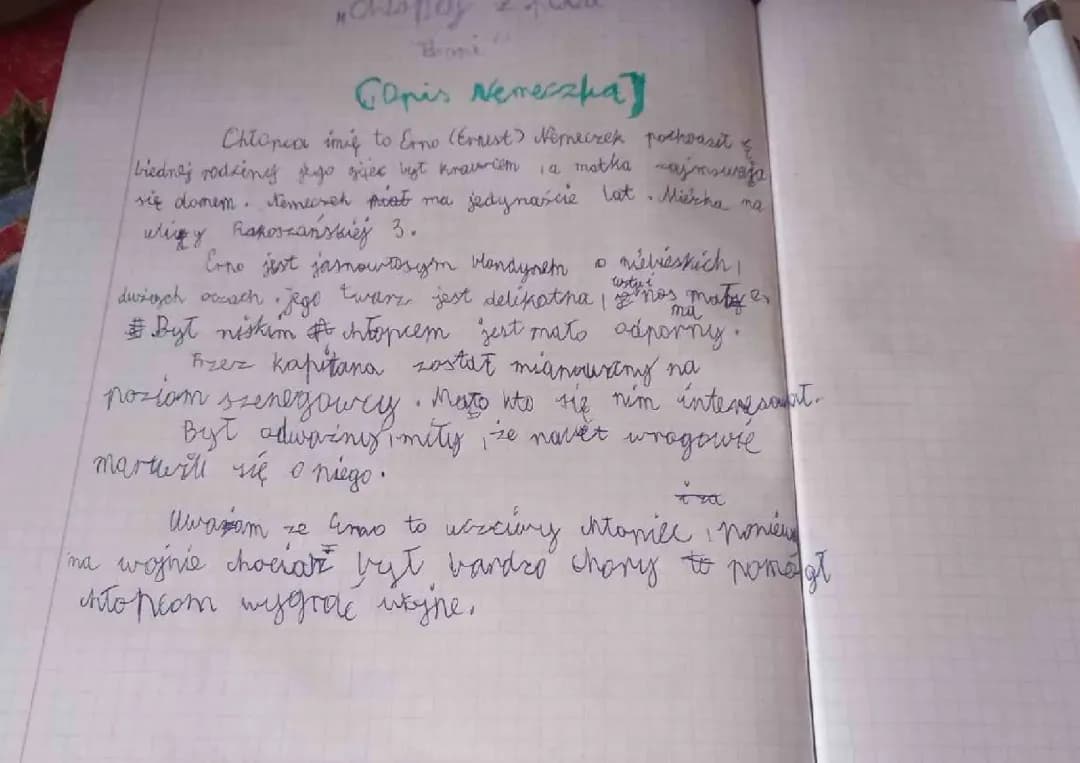 „Chłopcy z Placu
Broni"
[Opis Nemeczka]
Chłopca imię to Erno (Ernest) Nemeczek pochodził z
biednej rodziny jego ojciec był krawcem, a matka zajmowała
się domem. Nemeczek ma jedynaście lat. Mieszka na
ulicy Rakoszańskiej 3.
Erno jest jasnowłosym blondynem o niebieskich,
dużych oczach. jego twarz jest delikatna, nos mały
Był niskim chłopcem jest mało odporny.
Przez kapitana został mianowany na
poziom szeregowcy. Mało kto się nim interesował.
Był odważny, miły, że nawet wrogowie
martwili się o niego.
Uważam ze Erno to uczciwy chłopiec, poniew
na wojnie chociaż był bardzo chory to pomógł
chłopcom wygrać wojne.